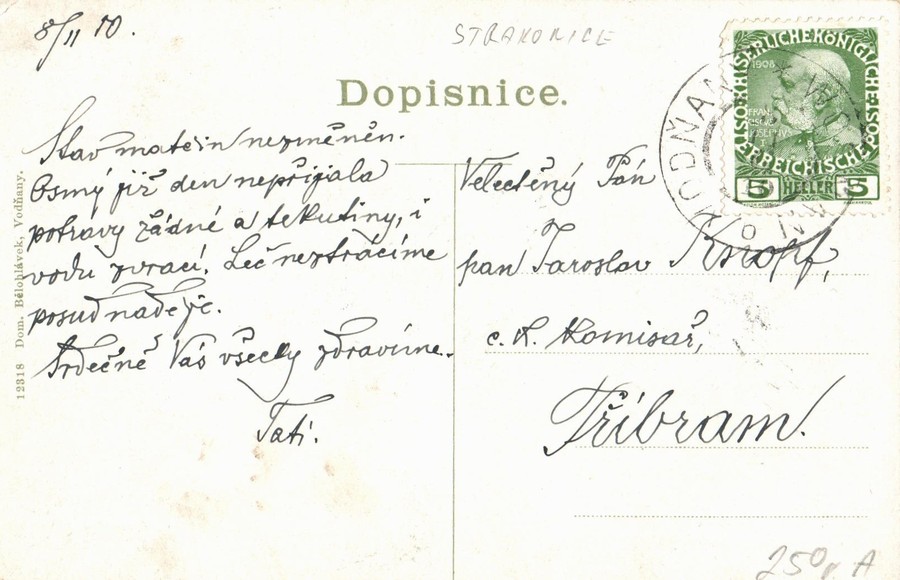 8/II 10.
STRAKONICE
Dopisnice.
Stav matčin nezměněn.
Osmý již den nepřijala
potravy žádné a tekutiny, i
vodu zvrací. Leč neztrácíme
posud naděje.
Srdečně Vás všecky zdravíme.
Tatí.
12318 Dom. Bělohlávek, Vodňany.
Velectěný Pán
pan Jaroslav
c. k. komisař,
Příbram!
KAISERLICHE KÖNIGLICHE
ÖSTERREICHISCHE POST
1908
5 HELLER 5
VODŇANY
250,- A